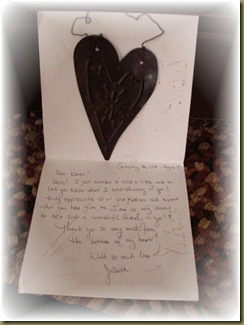 Dear Karen!
Hello! I just wanted to send a little note to
let you know that I was thinking of you! I
truly appreciate all of the kindness and support
that you have given me. I am so very blessed
to have such a wonderful friend in you!
Thank you so very much from
the bottom of my heart!
With so much love